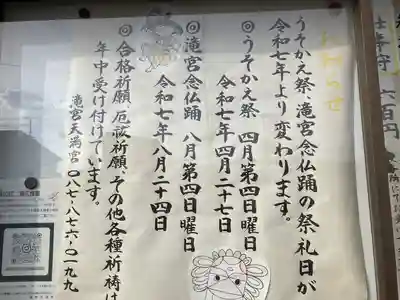 お知らせ
うそかえ祭、滝宮念仏踊の祭礼日が
令和七年より変わります。
◎うそかえ祭 四月第四日曜日
令和七年四月二十七日
◎滝宮念仏踊 八月第四日曜日
令和七年八月二十四日
◎合格祈願、厄祓祈願、その他各種祈祷は
年中受け付けています。
滝宮天満宮 〇八七-八七六-〇一九九